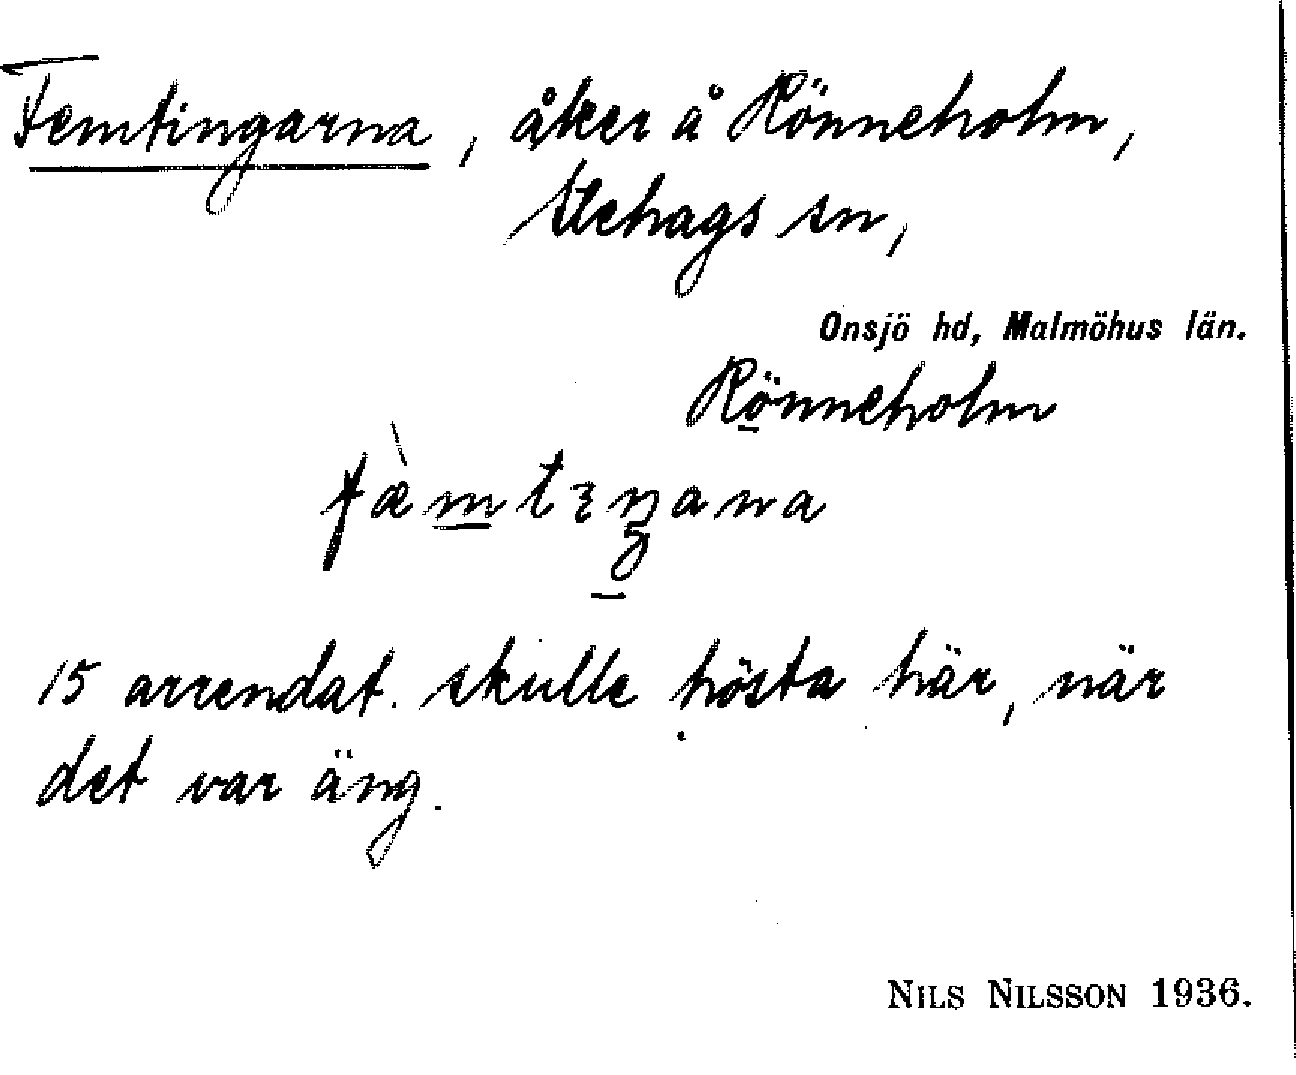 Femtingarna, åker å Rönneholm,
Stehags sn,
Onsjö hd, Malmöhus län.
Rönneholm
15 arrendat. skulle hösta här, när
det var äng.
NILS NILSSON 1936.